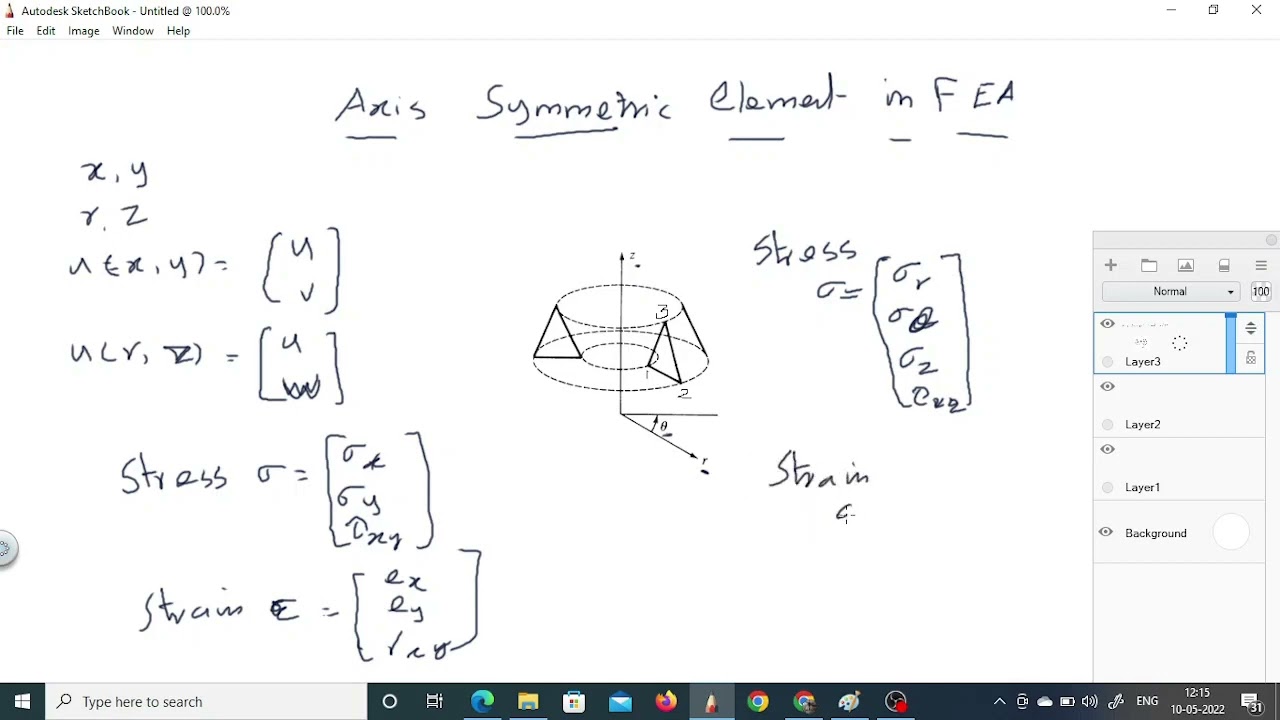 Autodesk SketchBook - Untitled @ 100.0%
File Edit Image Window Help
Axis Symmetric Element in FEA
x, y
r, z
u(x, y) =
u
v
u(r, z) =
u
w
Stress σ =
σx
σy
τxy
Strain e =
ex
ey
γxy
z
3
1
2
θ
r
Stress
σ =
σr
σθ
σz
τxz
Strain
e
Normal
100
Layer3
Layer2
Layer1
Background
Type here to search
ENG
12:15
10-05-2022
31